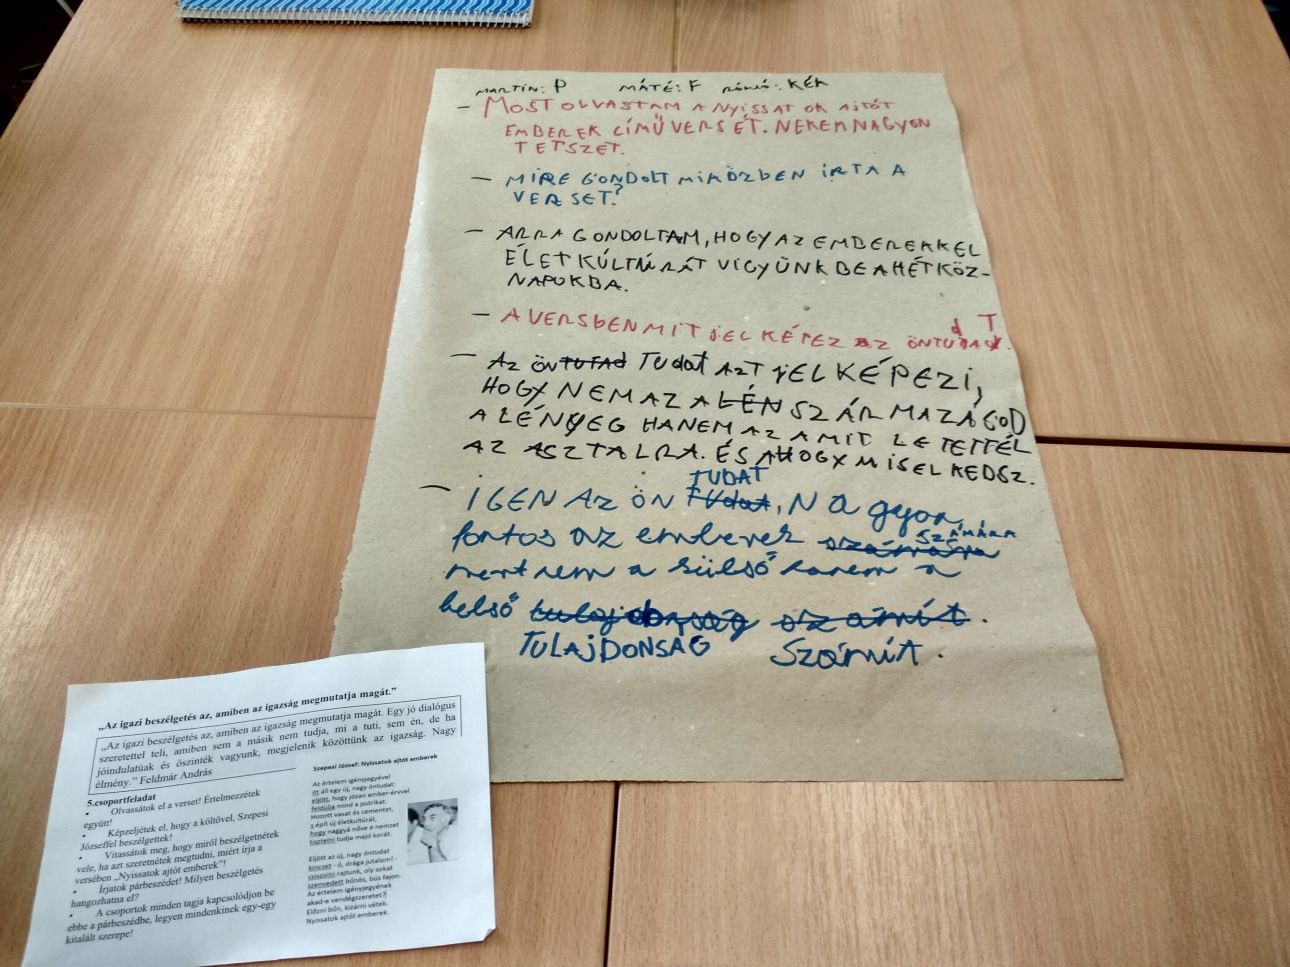 MARTIN: P MÁTÉ: F RÓMEÓ: KÉK
- MOST OLVASTAM A NYISSATOK AJTÓT
EMBEREK CÍMŰ VERSÉT. NEKEM NAGYON
TETSZET.
- MIRE GONDOLT MIKÖZBEN ÍRTA A
VERSET?
- ARRA GONDOLTAM, HOGY AZ EMBEREKKEL
ÉLETKÚLTÚRÁT VIGYÜNK BE A HÉTKÖZ-
NAPOKBA.
- A VERSBEN MIT JELKÉPEZ AZ ÖNTUDAT.
- AZ ÖN TUFAD TUdat AZT JELKÉPEZI,
HOGY NEM AZ A LÉN SZÁRMAZÁGOD
A LÉNYEG HANEM AZ AMIT LETETTÉL
AZ ASZTALRA. ÉS AHOGY MISELKEDSZ.
TUDAT
- IGEN AZ ÖN TUdat, NAgyon
SZÁMÁRA
fontos az emberek számára
mert nem a külső hanem a
belső tulajdonság számít.
TULAJDONSÁG Számít.
„Az igazi beszélgetés az, amiben az igazság megmutatja magát.”
„Az igazi beszélgetés az, amiben az igazság megmutatja magát. Egy jó dialógus
szeretettel teli, amiben sem a másik nem tudja, mi a tuti, sem én, de ha
jóindulatúak és őszinték vagyunk, megjelenik közöttünk az igazság. Nagy
élmény.” Feldmár András
5.csoportfeladat
• Olvassátok el a verset! Értelmezzétek
együtt!
• Képzeljétek el, hogy a költővel, Szepesi
Józseffel beszélgettek!
• Vitassátok meg, hogy miről beszélgetnétek
vele, ha azt szeretnétek megtudni, miért írja a
versében „Nyissatok ajtót emberek”!
• Írjatok párbeszédet! Milyen beszélgetés
hangozhatna el?
• A csoportok minden tagja kapcsolódjon be
ebbe a párbeszédbe, legyen mindenkinek egy-egy
kitalált szerepe!
Szepesi József: Nyissatok ajtót emberek
Az értelem igényjegyével
itt áll egy új, nagy öntudat:
eljött, hogy józan ember-érvvel
feldúlja mind a putrikat.
Hozott vasat és cementet,
s épít új életkultúrát,
hogy naggyá nőve e nemzet
tisztelni tudja majd korát.
Eljött az új, nagy öntudat
kincset - ó, drága jutalom! -
csiszolni rajtunk, oly sokat
szenvedett bűnös, bús fajon.
Az értelem igényjegyének
akad-e vendégszeretet?
Előzni bűn, kizárni vétek.
Nyissatok ajtót emberek.